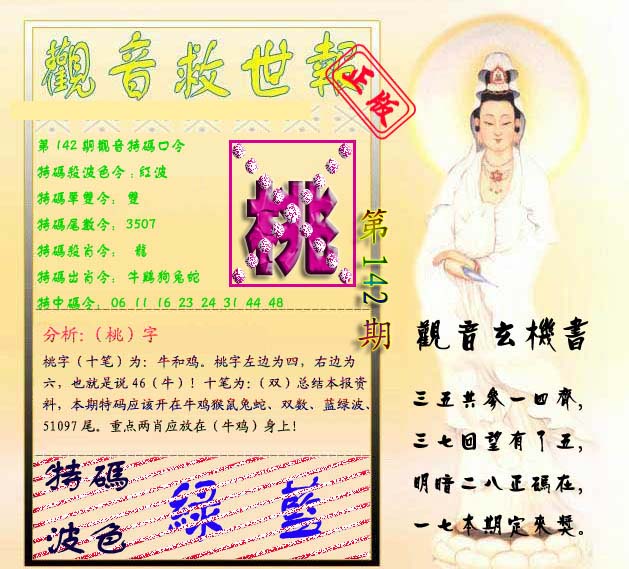 觀音救世報
正版
第142期觀音特碼口令
特碼殺波色令:紅波
特碼單雙令: 雙
特碼尾數令: 3507
特碼殺肖令: 龍
特碼出肖令: 牛鷄狗兔蛇
特中碼令: 06 11 16 23 24 31 44 48
桃
第142期
分析:（桃）字
桃字（十笔）为: 牛和鸡。桃字左边为四，右边为
六，也就是说46（牛）！十笔为:（双）总结本报资
料，本期特码应该开在牛鸡猴鼠兔蛇、双数、蓝绿波、
51097尾。重点两肖应放在（牛鸡）身上!
特碼
波色
綠 藍
觀音玄機書
三五共參一四齊，
三七回望有了五，
明暗二八正碼在，
一七本期定來獎。